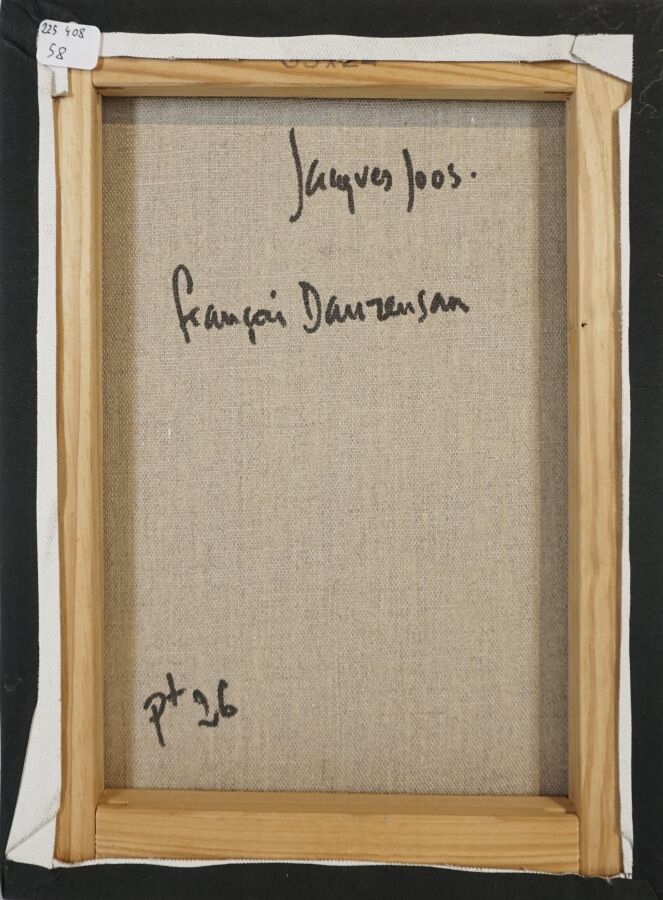 225 408
58
Jacques Joos.
François Danrensan
pt 26